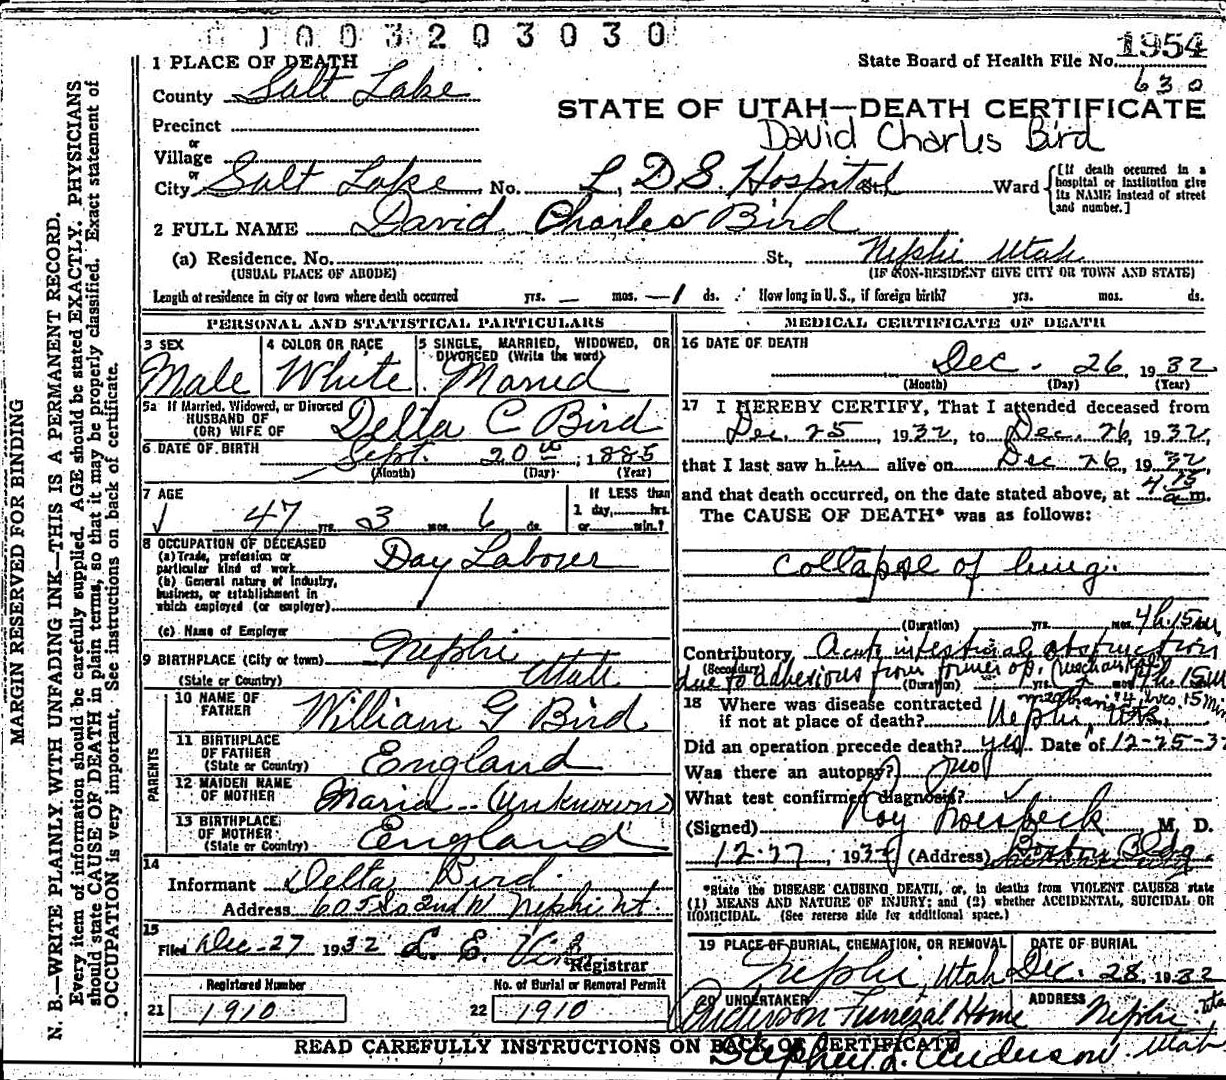 1003203030
1 PLACE OF DEATH
State Board of Health File No. 1954
County Salt Lake
630
STATE OF UTAH—DEATH CERTIFICATE
Precinct
David Charles Bird
or
Village
or
City Salt Lake No. L. D. S. Hospital St. Ward
[If death occurred in a hospital or institution give its NAME instead of street and number.]
2 FULL NAME David Charles Bird
(a) Residence. No. St., Nephi Utah
(USUAL PLACE OF ABODE) (IF NON-RESIDENT GIVE CITY OR TOWN AND STATE)
Length of residence in city or town where death occurred yrs. — mos. — 1 ds. How long in U. S., if foreign birth? yrs. mos. ds.
PERSONAL AND STATISTICAL PARTICULARS
3 SEX 4 COLOR OR RACE 5 SINGLE, MARRIED, WIDOWED, OR DIVORCED (Write the word)
Male White Married
5a If Married, Widowed, or Divorced
HUSBAND OF
(OR) WIFE OF Delta C Bird
6 DATE OF BIRTH Sept. 20th, 1885
(Month) (Day) (Year)
7 AGE If LESS than
47 yrs. 3 mos. 6 ds. 1 day, hrs.
or min.?
8 OCCUPATION OF DECEASED
(a) Trade, profession or
particular kind of work Day Laborer
(b) General nature of industry,
business, or establishment in
which employed (or employer)
(c) Name of Employer
9 BIRTHPLACE (City or town) Nephi
(State or Country) Utah
PARENTS
10 NAME OF
FATHER William G Bird
11 BIRTHPLACE
OF FATHER England
(State or Country)
12 MAIDEN NAME
OF MOTHER Maria - (Unknown)
13 BIRTHPLACE
OF MOTHER England
(State or Country)
14
Informant Delta Bird
Address 605 So 2nd W Nephi Ut.
15
Filed Dec-27 1932 L. E.
Registrar
Registered Number No. of Burial or Removal Permit
21 1910 22 1910
MEDICAL CERTIFICATE OF DEATH
16 DATE OF DEATH
Dec. 26, 1932
(Month) (Day) (Year)
17 I HEREBY CERTIFY, That I attended deceased from
Dec. 25, 1932, to Dec. 26, 1932,
that I last saw him alive on Dec 26, 1932,
and that death occurred, on the date stated above, at 4 15 a m.
The CAUSE OF DEATH* was as follows:
Collapse of lung.
(Duration) yrs. mos. 4h. 15m
Contributory Acute intestinal obstruction
(Secondary) due to adhesions from former op. (mechanical)
(Duration) yrs. mos. 4h. 15m
18 Where was disease contracted
if not at place of death? Nephi, Utah.
Did an operation precede death? yes Date of 12-25-32
Was there an autopsy? no
What test confirmed diagnosis?
(Signed) Roy M. D.
12-27, 1932 (Address) Boston Bldg.
*State the DISEASE CAUSING DEATH, or, in deaths from VIOLENT CAUSES state
(1) MEANS AND NATURE OF INJURY; and (2) whether ACCIDENTAL, SUICIDAL OR
HOMICIDAL. (See reverse side for additional space.)
19 PLACE OF BURIAL, CREMATION, OR REMOVAL DATE OF BURIAL
Nephi, Utah Dec. 28, 1932
20 UNDERTAKER ADDRESS
Anderson Funeral Home Nephi Utah
READ CAREFULLY INSTRUCTIONS ON BACK OF CERTIFICATE
Anderson. Utah
MARGIN RESERVED FOR BINDING
N. B.—WRITE PLAINLY WITH UNFADING INK—THIS IS A PERMANENT RECORD.
Every item of information should be carefully supplied. AGE should be stated EXACTLY. PHYSICIANS
should state CAUSE OF DEATH in plain terms, so that it may be properly classified. Exact statement of
OCCUPATION is very important. See instructions on back of certificate.